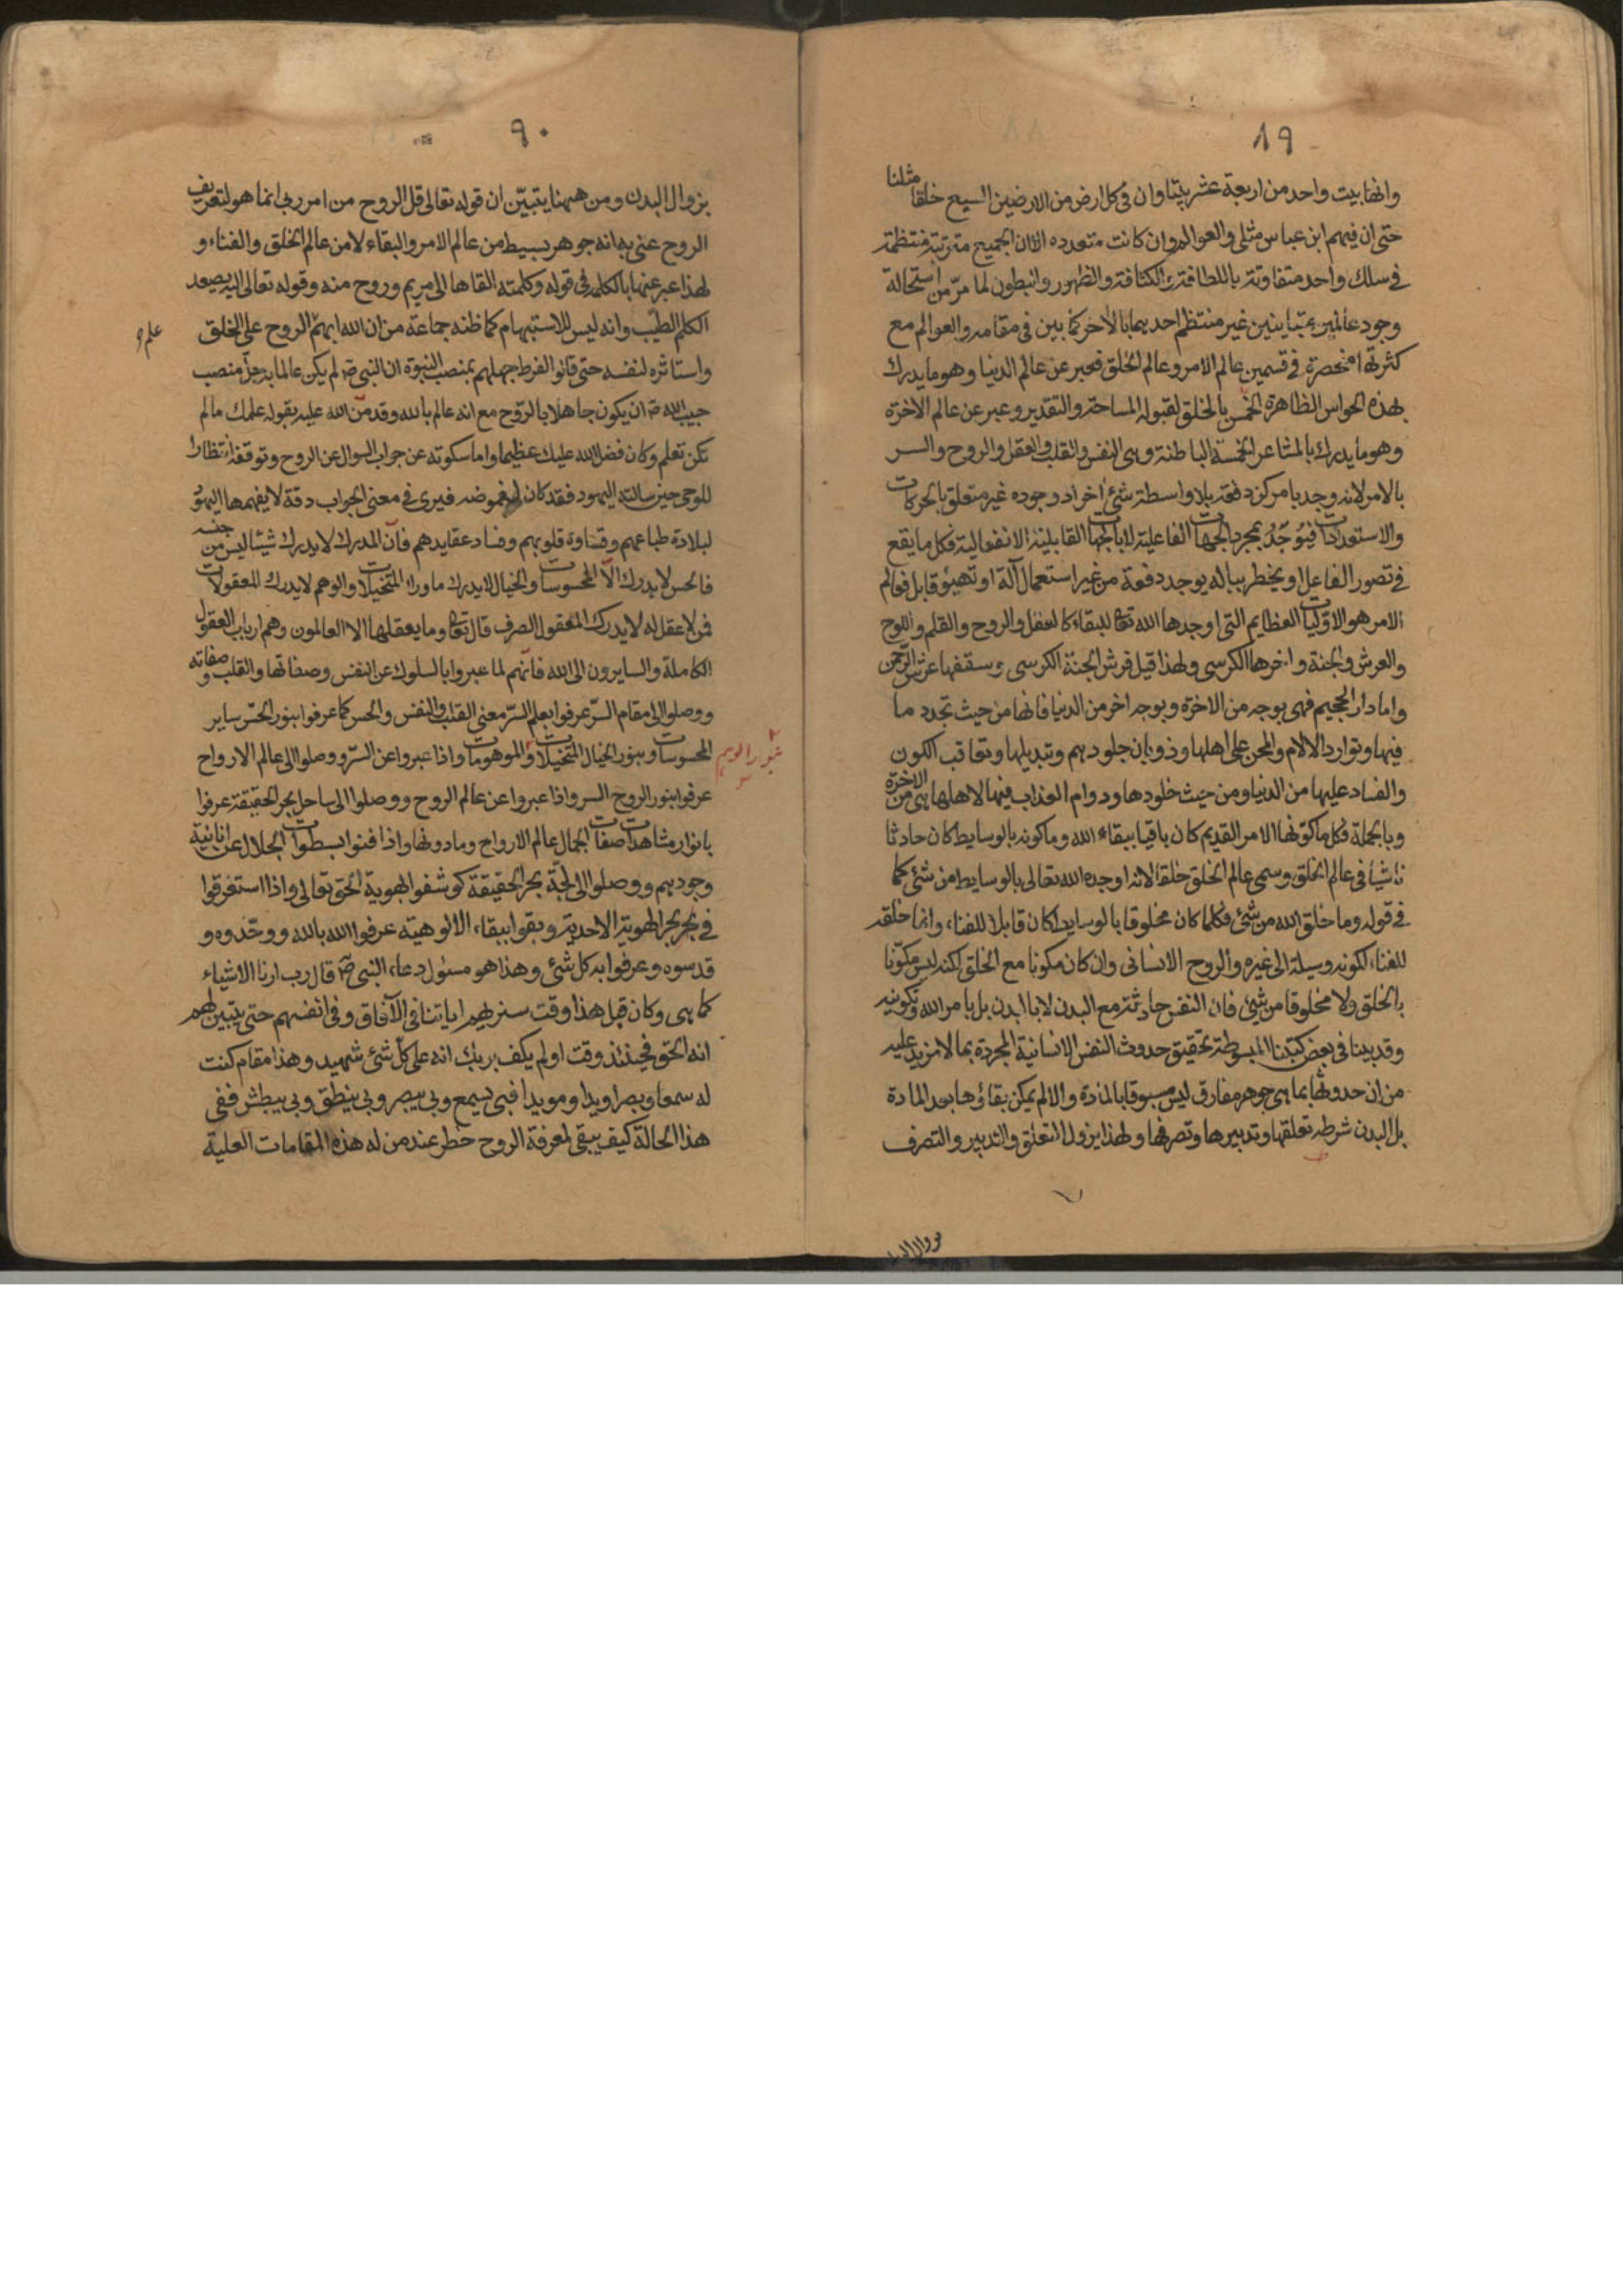 ٨٩
وانها بيت واحد من اربعة عشر بيتا وان في كل ارض من الارضين السبع خلقا مثلنا
حتى ان فيهم ابن عباس مثلي والعوالم وان كانت متعدده الا ان الجميع مترتبة منتظمة
في سلك واحد متفاوتة باللطافة والكثافة والظهور والبطون لما مرّ من استحالة
وجود عالمين متباينين غير منتظم احديهما بالاخر كما بين في مقامه والعوالم مع
كثرتها منحصرة في قسمين عالم الامر وعالم الخلق فعبر عن عالم الدنيا وهو ما يدرك
بهذه الحواس الظاهرة الخمس بالخلق لقبوله المساحة والتقدير وعبر عن عالم الاخرة
وهو ما يدرك بالمشاعر الخمسة الباطنة وهي النفس والقلب والعقل والروح والسر
بالامر لانه وجد بامر كن دفعة بلا واسطة شئ اخر اذ وجوده غير متعلق بالحركات
والاستعدادات فيُوجَدُ بمجرد الجهات الفاعلية لا بالجهات القابلية الانفعالية فكل ما يقع
في تصور الفاعل او يخطر بباله يوجد دفعة من غير استعمال آلة او تهيئ قابل فعالم
الامر هو الاوليات العظايم التي اوجدها الله تعالى للبقاء كالعقل والروح والقلم واللوح
والعرش والجنة واخرها الكرسي ولهذا قيل فرش الجنة الكرسي وسقفها عرش الرحمن
واما دار الجحيم فهي بوجه من الاخرة وبوجه اخر من الدنيا فانها من حيث تجدد ما
فيها وتوارد الالام والمحن على اهلها وذوبان جلودهم وتبديلها وتعاقب الكون
والفساد عليها من الدنيا ومن حيث خلودها ودوام العذاب فيها لاهلها هي من الاخرة
وبالجملة فكل ما كونها الامر القديم كان باقيا ببقاء الله وما كونه بالوسايط كان حادثا
ناشيا في عالم الخلق وسمى عالم الخلق خلقا لانه اوجده الله تعالى بالوسايط من شئ كما
في قوله وما خلق الله من شئ فكلما كان مخلوقا بالوسايط كان قابلا للفناء وانما خلقه
للفناء لكونه وسيلة الى غيره والروح الانساني وان كان مكونا مع الخلق لكنه ليس مكوّنا
بالخلق ولا مخلوقا من شئ فان النفس حادثة مع البدن لا بالبدن بل بامر الله وتكوينه
وقد بينا في بعض كتبنا المبسوطة تحقيق حدوث النفس الانسانية المجردة بما لا مزيد عليه
من ان حدوثها بما هي جوهر مفارق ليس مسبوقا بالمادة والا لم يمكن بقاؤها بعد المادة
بل البدن شرط تعلقها وتدبيرها وتصرفها ولهذا يزول التعلق والتدبير والتصرف
٩٠
بزوال البدن ومن ههنا يتبيّن ان قوله تعالى قل الروح من امر ربي انما هو لتعريف
الروح عني به انه جوهر بسيط من عالم الامر والبقاء لا من عالم الخلق والفناء و
لهذا عبر عنها بالكلمة في قوله وكلمته القاها الى مريم وروح منه وقوله تعالى اليه يصعد
الكلم الطيب وانه ليس للاستبهام كما ظنه جماعة من ان الله ابهم الروح على الخلق
واستاثره لنفسه حتى قالوا لفرط جهلهم بمنصب النبوة ان النبي ص لم يكن عالما به جلّ منصب
حبيب الله ص ان يكون جاهلا بالرّوح مع انه عالم بالله وقد منّ الله عليه بقوله علمك مالم
تكن تعلم وكان فضل الله عليك عظيما واما سكوته عن جواب السوال عن الروح وتوقفه انتظارا
للوحي حين سالته اليهود فقد كان لغموضه فيرى في معنى الجواب دقة لا يفهمها اليهود
لبلادة طباعهم وقساوة قلوبهم وفساد عقايدهم فانّ المدرك لا يدرك شيئا ليس من جنسه
فالحس لا يدرك الاّ المحسوسات والخيال لا يدرك ماوراء المتخيلات والوهم لا يدرك المعقولات
فمن لا عقل له لا يدرك المعقول الصرف قال تعالى وما يعقلها الا العالمون وهم ارباب العقول
الكاملة والسايرون الى الله فانّهم لما عبروا بالسلوك عن النفس وصفاتها والقلب وصفاته
ووصلوا الى مقام السرّ عرفوا بعلم السرّ معنى القلب والنفس والحس كما عرفوا بنور الحسّ ساير
المحسوسات وبنور الخيال المتخيلات والموهومات واذا عبروا عن السرّ ووصلوا الى عالم الارواح
عرفوا بنور الروح السر واذا عبروا عن عالم الروح ووصلوا الى ساحل بحر الحقيقة عرفوا
بانوار مشاهدات صفات الجمال عالم الارواح وما دونها واذا فنوا بسطوات الجلال عن انانية
وجودهم ووصلوا الى لجّة بحر الحقيقة كوشفوا بهوية الحق تعالى واذا استغرقوا
في بحر الهوية الاحدية وبقوا ببقاء الالوهية عرفوا الله بالله ووحّدوه و
قدسوه وعرفوا به كل شئ وهذا هو مسئول دعاء النبي ص قال رب ارنا الاشياء
كما هي وكان قبل هذا وقت سنريهم اياتنا في الآفاق وفي انفسهم حتى يتبين لهم
انه الحق فحينئذ وقت اولم يكف بربك انه على كلّ شئ شهيد وهذا مقام كنت
له سمعا وبصرا ويدا ومويدا فبي يسمع وبي يبصر وبي ينطق وبي يبطش ففي
هذا الحالة كيف يبقى لمعرفة الروح خطر عند من له هذه المقامات العلية